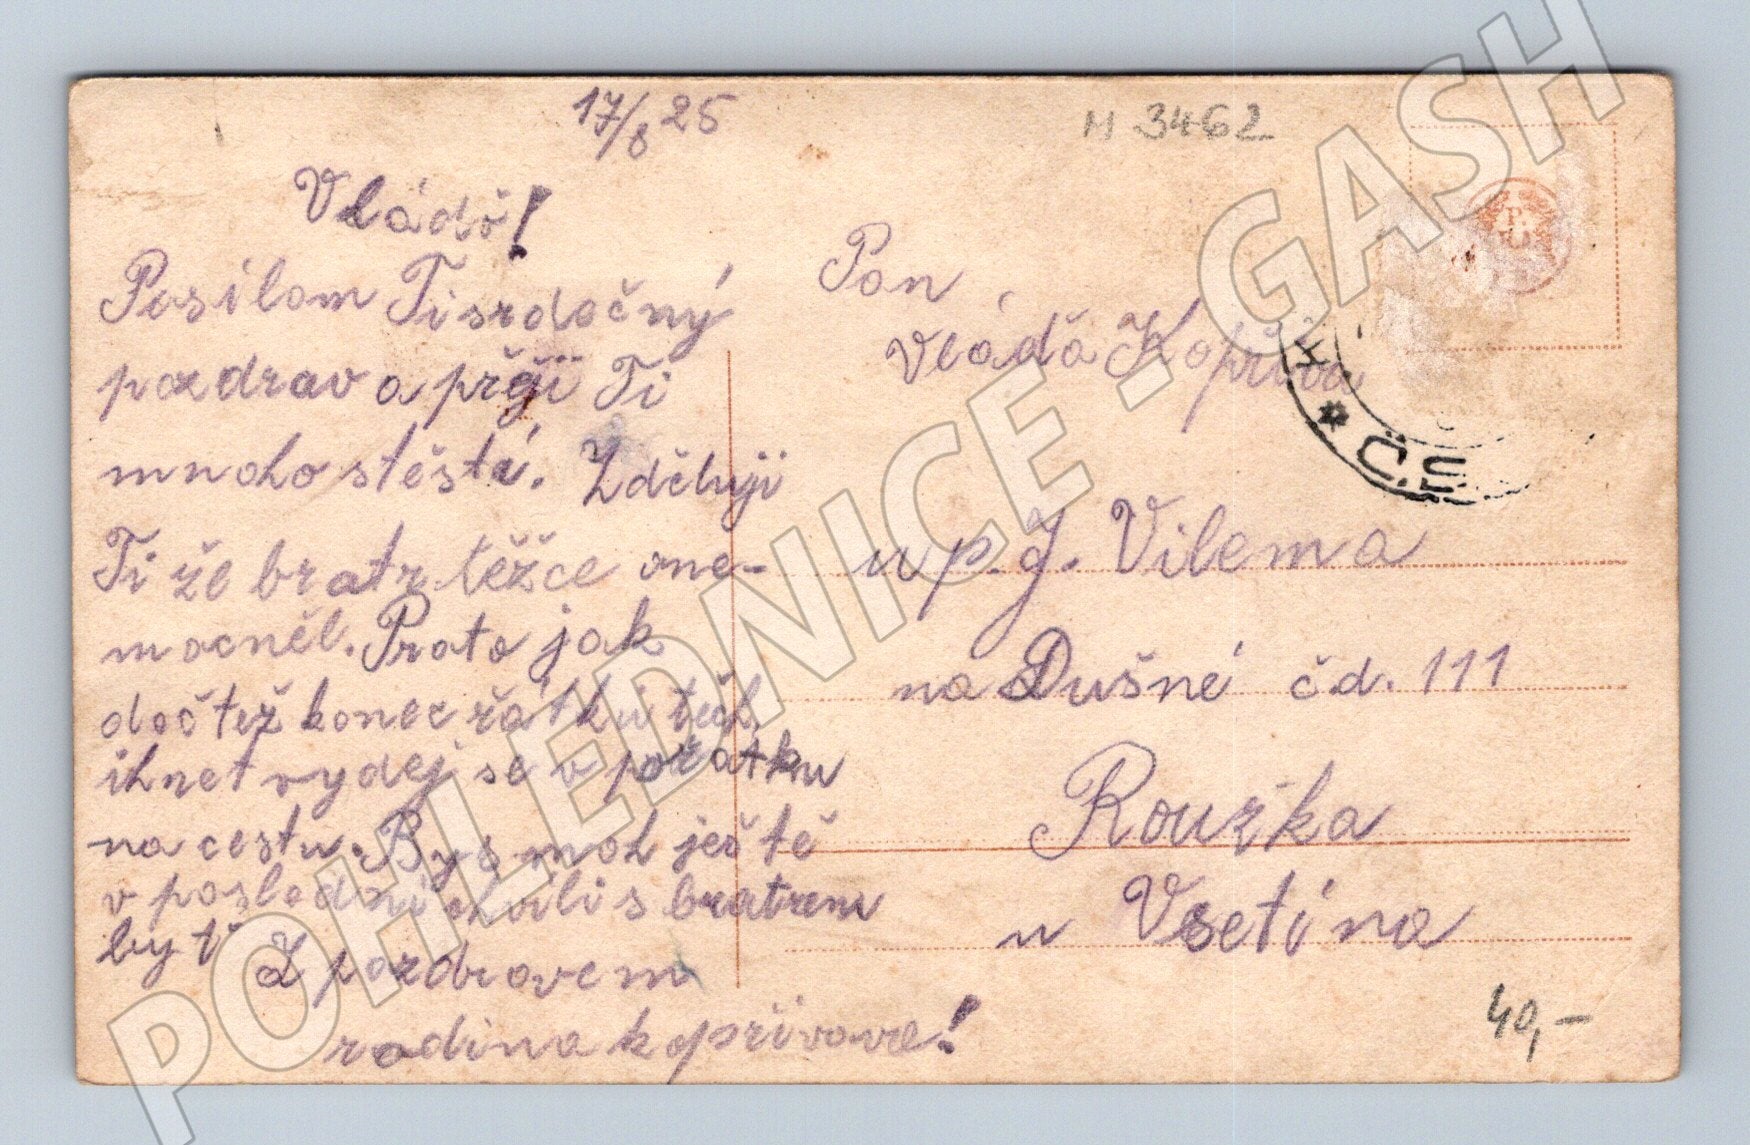 17/8 25
M 3462
Vládö!
Posílam Ti srdečný
pozdrav a přeji Ti
mnoho štěstí. Zděluji
Ti že bratr těžce one-
mocněl. Proto jak
dočtež konec řátku těch
ihnet vydej se v pořatku
na cestu. Bys moh ješte
v posledni chvili s bratrem
byti Z pozdravem
rodina kopřivove!
Pan
Vláďa Kopřiva
u p. J. Vilema
na Dušné čd. 111
Roužka
u Vsetína
40,-
Č.
POHLEDNICE - GASH